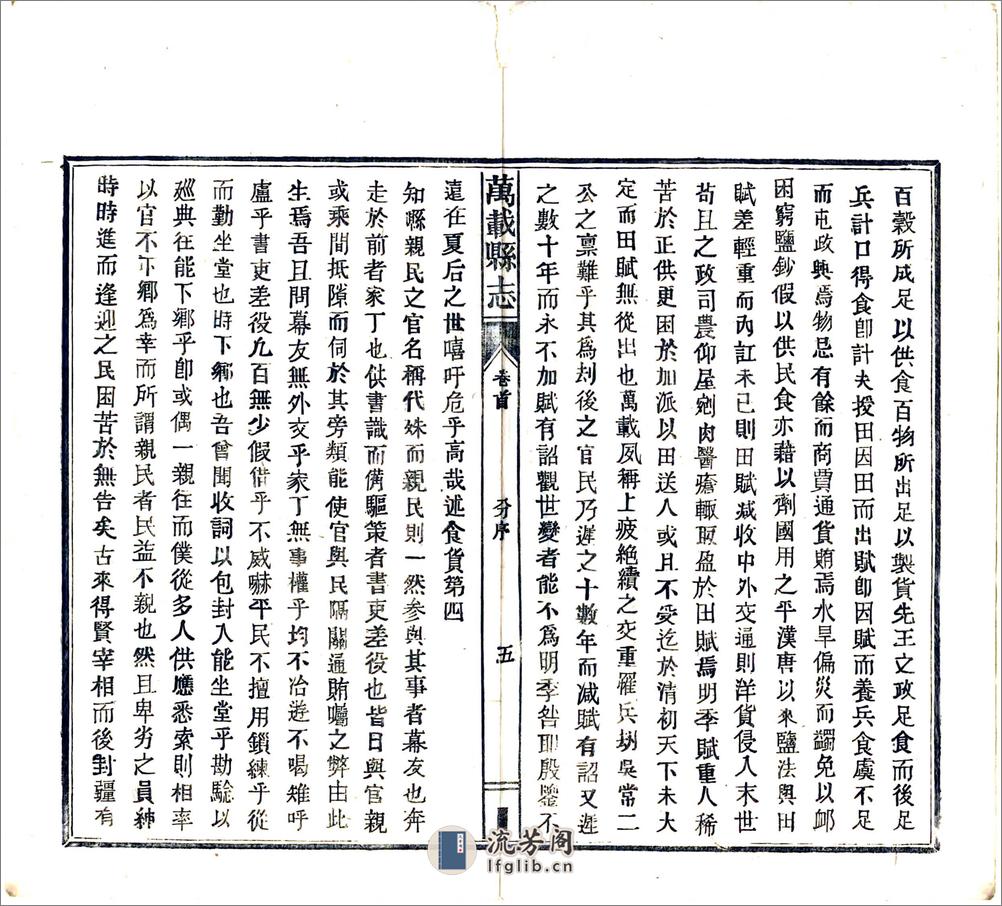 百穀所成足以供食百物所出足以製貨先王之政足食而後足
兵計口得食卽計夫授田因田而出賦卽因賦而養兵食虞不足
而屯政興焉物忌有餘而商賈通貨賄焉水旱偏災而蠲免以卹
困窮鹽鈔假以供民食亦藉以劑國用之平漢唐以來鹽法與田
賦差輕重而內訌未已則田賦減收中外交通則洋貨侵入末世
苟且之政司農仰屋剜肉醫瘡輒取盈於田賦焉明季賦重人稀
苦於正供更困於加派以田送人或且不受迄於清初天下未大
定而田賦無從出也萬載夙稱上疲絶續之交重罹兵捌吳常二
公之禀難乎其爲刦後之官民乃遲之十數年而減賦有詔又遲
之數十年而永不加賦有詔觀世變者能不爲明季咎耶殷鑒不
萬載縣志
卷首
分序
五
遠在夏后之世嘻吁危乎高哉述食貨第四
知縣親民之官名稱代殊而親民則一然參與其事者幕友也奔
走於前者家丁也供書識而備驅策者書吏差役也皆日與官親
或乘間抵隙而伺於其旁類能使官與民隔關通賄囑之弊由此
生焉吾且問幕友無外交乎家丁無事權乎均不冶遊不喝雉呼
盧乎書吏差役凢百無少假借乎不威嚇平民不擅用鎖練乎從
而勤坐堂也時下鄉也吾曾聞收詞以包封入能坐堂乎勘驗以
廵典往能下鄉乎卽或偶一親往而僕從多人供應悉索則相率
以官不下鄉爲幸而所謂親民者民益不親也然且卑劣之員紳
時時進而逢迎之民困苦於無告矣古來得賢宰相而後封疆有
流芳阁
lfglib.cn